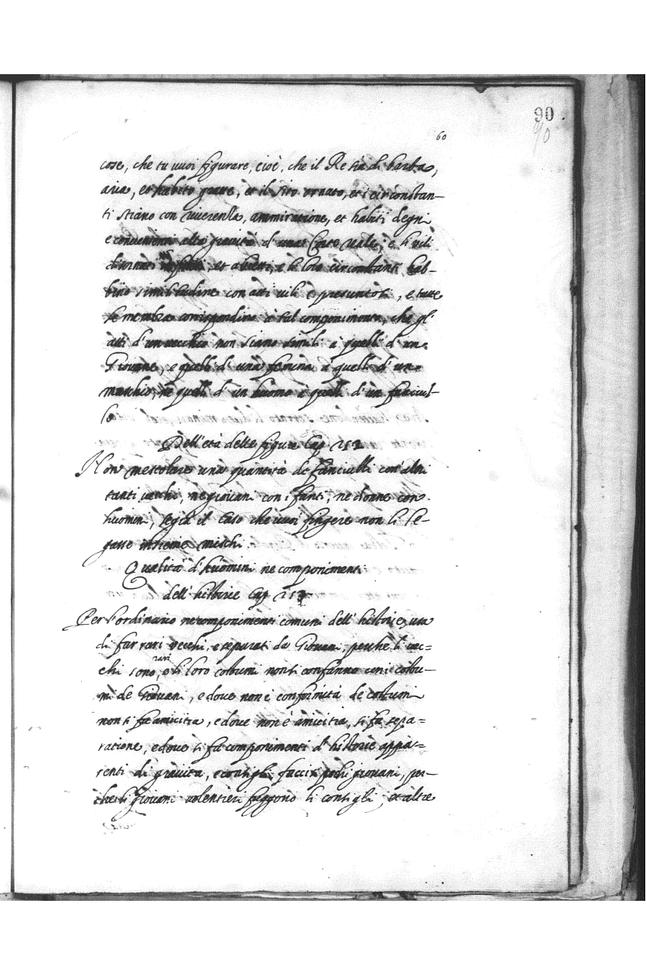 90
60
90
cose, che tu vuoi figurare, cioè, che il Re sia di barba,
aria, et habito grave, et il sito ornato, et i circonstan-
ti stiano con riverenza, ammiratione, et habiti degni
e convenienti alla gravità d'una Corte reale, e li vili
et abietti, e li loro circonstanti hab-
bino similitudine con atti vili e presuntosi, e tutte
le membra corrispondino à tal componimento, che gl'
atti d'un vecchio non siano simili à quelli d'un
Giovane, e quelli d'una femina à quelli d'un
maschio, ne quelli d'un huomo à quelli d'un fanciul-
lo
Dell'età delle figure Cap
Non mescolare una quantità de fanciulli con altri
tanti vecchi, ne giovani con i fanti, ne donne con
huomini, se già il caso che vuoi fingere non li le-
gasse insieme mischi.
Qualità d'huomini ne componimenti
dell'historie Cap
Per l'ordinario ne componimenti comuni dell'historie, usa
di far rari vecchi, e separati da Giovani, perche li vec=
chi sono rari, e li loro costumi non si confanno con i costu-
mi de Giovani, e dove non è conformità de costumi
non si fa amicitia, e dove non è amicitia, si fa sepa=
ratione, e dove si fa componimenti d'historie appa=
renti di gravità, e consigli facci pochi giovani, per-
che li giovani volentieri fuggono li consigli, et altre